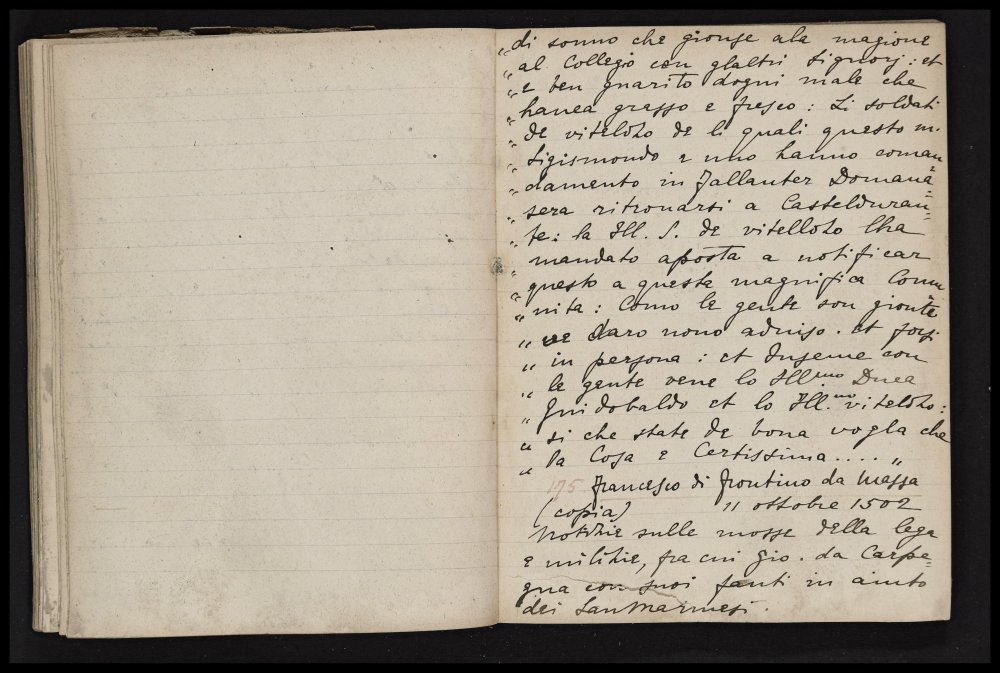 „ di sonno che gionse ala magione
„ al Collegio con glaltri Signorj : et
„ e ben guarito dogni male che
„ hauea grasso e fresco : Li soldati
„ de vitelozo de li quali questo m.
„ Sigismondo e uno hanno coman=
„ damento in Jallanter Domana=
„ sera ritrouarsi a Castelduran=
„ te : la Ill. S. de vitellozo lha
„ mandato aposta a notificar
„ questo a questa magnifica Comu
„ nita : Como le gente son gionte
„ ve daro nouo aduiso . et forsi
„ in persona : et Inseme con
„ le gente vene lo Ill.mo Duca
„ Guidobaldo et lo Ill.mo vitelozo :
„ si che state de bona vogla che
„ la Cosa e Certissima .... „
175 Francesco di Frontino da Massa
(copia) 11 ottobre 1502
Notizie sulle mosse della lega
e milizie, fra cui Gio. da Carpe=
gna con suoi fanti in aiuto
dei Sanmarinesi.